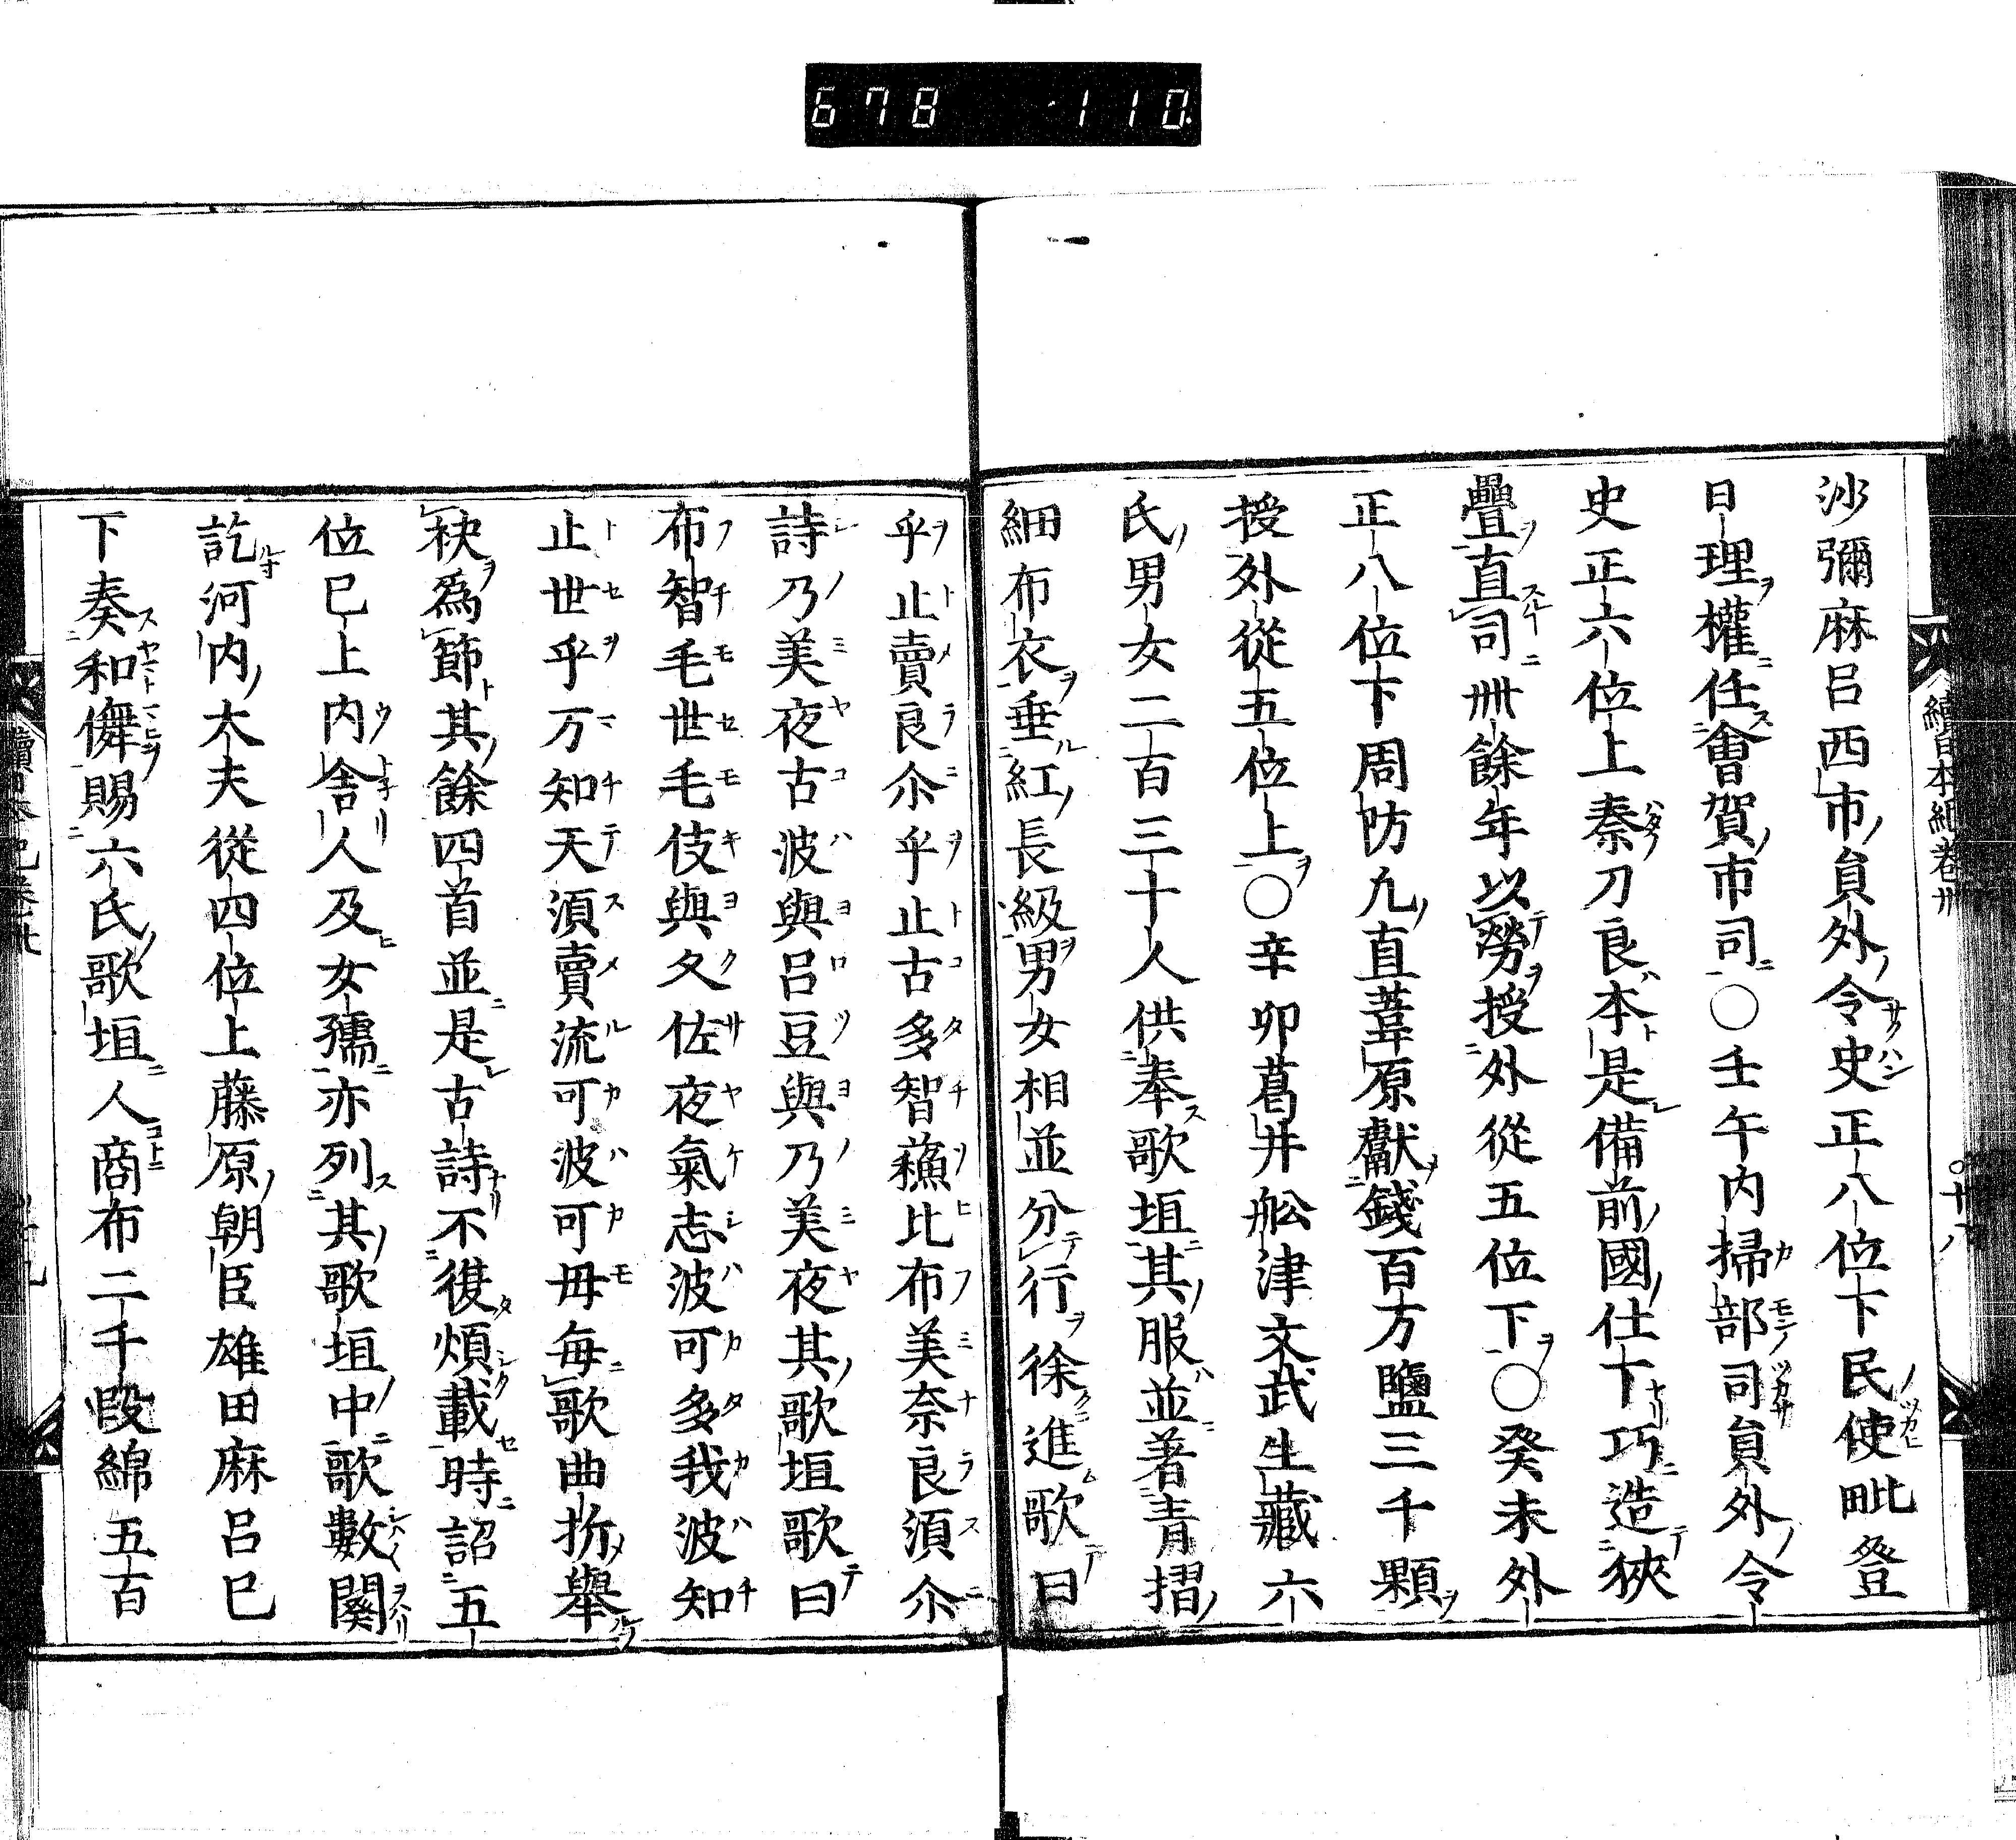 678 110
續日本紀卷卅
十八
沙彌麻呂西市員外令史正八位下民使毗登
日理權任會賀市司○壬午内掃部司員外令
史正六位上秦刀良本是備前國仕丁巧造狹
疊直司卌餘年以勞授外從五位下○癸未外
正八位下周防凡直葦原獻錢百万鹽三千顆
授外從五位上○辛卯葛井舩津文武生藏六
氏男女二百三十人供奉歌垣其服並著青摺
細布衣垂紅長級男女相並分行徐進歌曰
乎止賣良尒乎止古多智蘓比布美奈良須尒
詩乃美夜古波與呂豆與乃美夜其歌垣歌曰
布智毛世毛伎與久佐夜氣志波可多我波知
止世乎万知天須賣流可波可毋每歌曲折擧
袂爲節其餘四首並是古詩不復煩載時詔五
位已上内舎人及女孺亦列其歌垣中歌數闋
訖河内大夫從四位上藤原朝臣雄田麻呂已
下奏和儛賜六氏歌垣人商布二千段綿五百